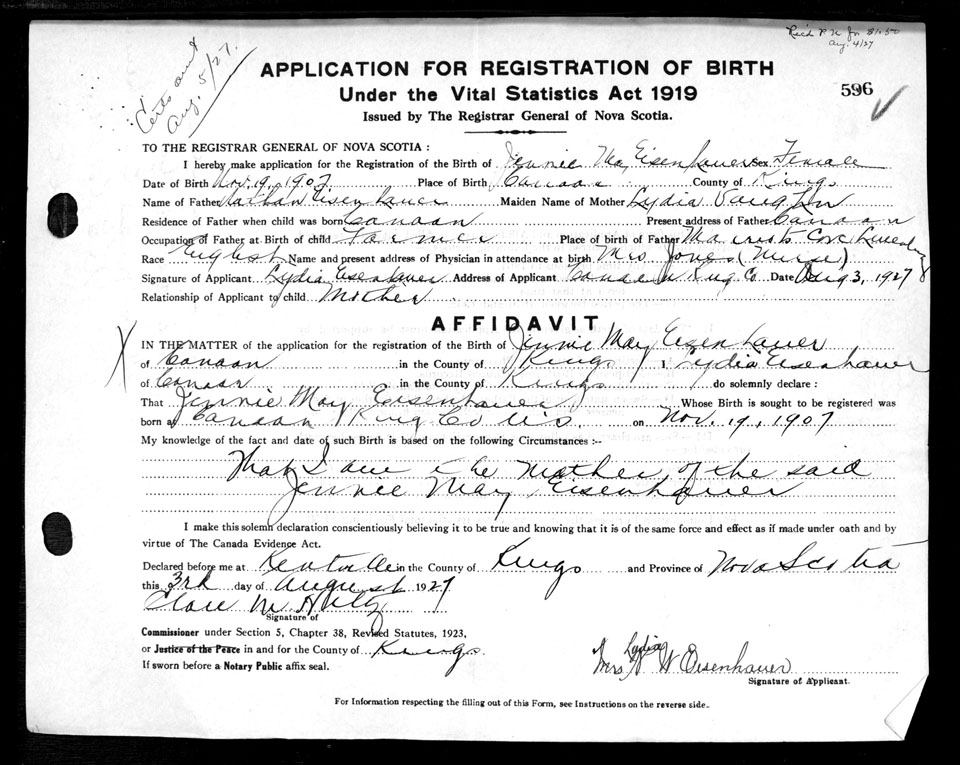 Rec'd P.N. for $1.50
Aug. 4/27
Certs and
Aug. 5/27.
APPLICATION FOR REGISTRATION OF BIRTH
Under the Vital Statistics Act 1919
596
Issued by The Registrar General of Nova Scotia.
TO THE REGISTRAR GENERAL OF NOVA SCOTIA :
I hereby make application for the Registration of the Birth of Jennie May Eisenhauer Sex Female
Date of Birth Nov. 19, 1907 Place of Birth Canaan County of Kings
Name of Father Nathan Eisenhauer Maiden Name of Mother Lydia Vaughn
Residence of Father when child was born Canaan Present address of Father Canaan
Occupation of Father at Birth of child Farmer Place of birth of Father Cove Lunenburg
Race English Name and present address of Physician in attendance at birth Mrs Jones (Nurse)
Signature of Applicant Lydia Eisenhauer Address of Applicant Canaan King Co Date Aug 3, 1927
Relationship of Applicant to child Mother
AFFIDAVIT
IN THE MATTER of the application for the registration of the Birth of Jennie May Eisenhauer
of Canaan in the County of Kings I, Lydia Eisenhauer
of Canaan in the County of Kings do solemnly declare :
That Jennie May Eisenhauer Whose Birth is sought to be registered was
born at Canaan King Co N.S. on Nov. 19, 1907
My knowledge of the fact and date of such Birth is based on the following Circumstances :--
That I am the Mother of the said
Jennie May Eisenhauer
I make this solemn declaration conscientiously believing it to be true and knowing that it is of the same force and effect as if made under oath and by
virtue of The Canada Evidence Act.
Declared before me at Kentville in the County of Kings and Province of Nova Scotia
this 3rd day of August 1927
M
Signature of
Commissioner under Section 5, Chapter 38, Revised Statutes, 1923,
or Justice of the Peace in and for the County of Kings.
If sworn before a Notary Public affix seal.
Lydia
Mrs N W Eisenhauer
Signature of Applicant.
For Information respecting the filling out of this Form, see Instructions on the reverse side.